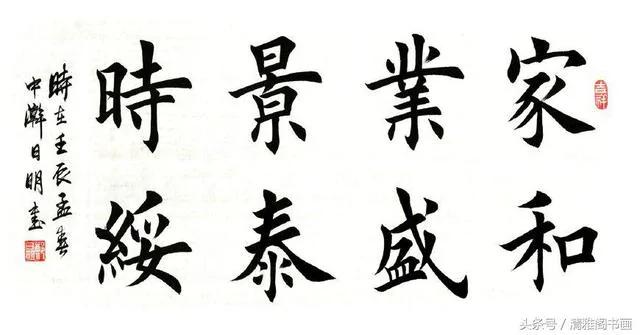 吉祥
家和
業盛
景泰
時綏
時在壬辰孟春
日明書
头条号／清雅阁书画